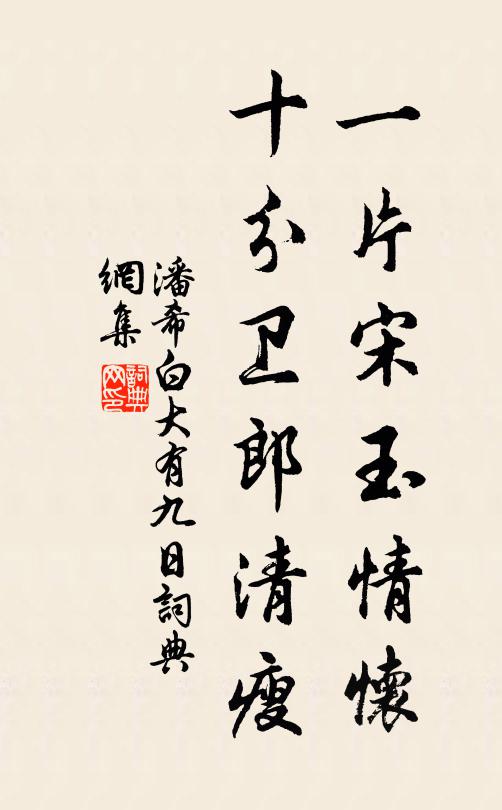 一片宋玉情懷
十分卫郎清瘦
潘希白大有九日詞典
網集
詞典
网印